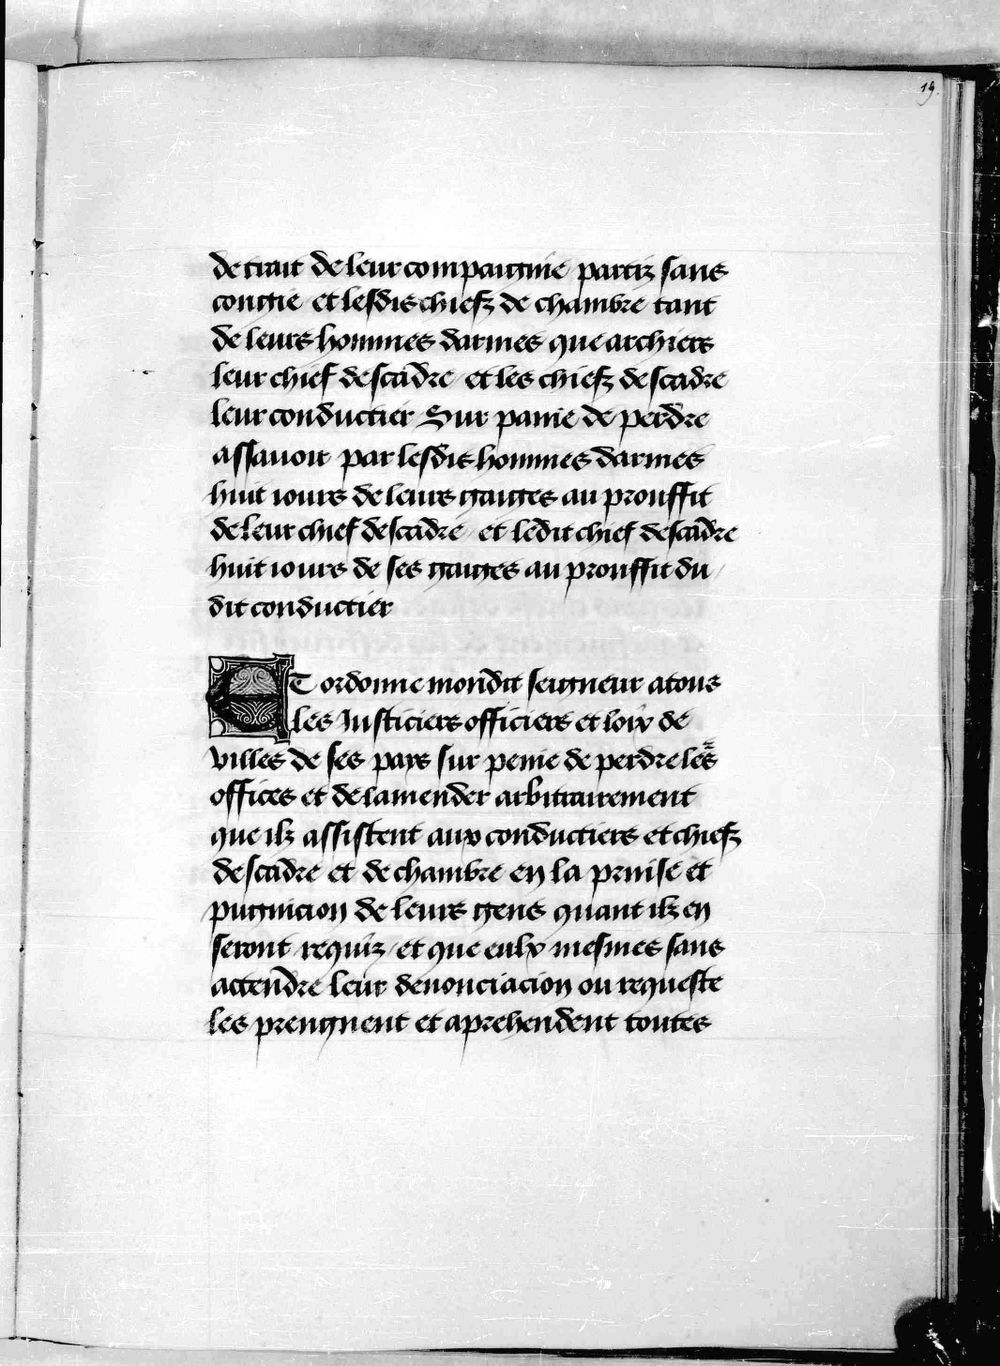 19.
de trait de leur compaignie / partiz sans
congie et lesdis chiefz de chambre tant
de leurs hommes darmes que archiers
leur chief descadre / et les chiefz descadre
leur conductier Sur paine de perdre
assauoir par lesdis hommes darmes
huit iours de leurs gaiges au prouffit
de leur chief descadre / et ledit chief descadre
huit iours de ses gaiges au prouffit du /
dit conductier
ET ordonne mondit seigneur a tous
les Justiciers officiers et loix de
villes de ses pays sur peine de perdre les
offices et de lamender arbitrairement
que ilz assistent aux conductiers et chiefz
descadre et de chambre en la prinse et
pugnicion de leurs gens quant ilz en
seront requiz / et que eulx mesmes sans
attendre leur denonciacion ou requeste
les prengnent et aprehendent toutes